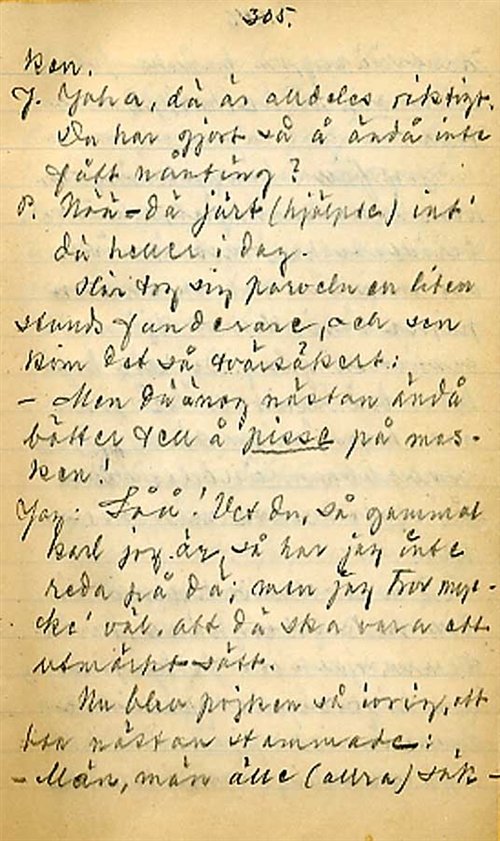 305.
ken.
J. Joha, dä är alldeles riktigt.
Du har gjort så å ändå inte
fått nånting?
P. Nöä - dä järt (hjälpte) int'
dä heller i dag.
Här tog sig parveln en liten
stunds funderare, och sen
kom det så tvärsäkert:
- Men dä ä nog nästan ändå
bätter tell å pisse på mas-
ken!
Jag: Såå! Vet du, så gammal
karl jag är, så har jag inte
reda på dä; men jag tror myc-
ke' väl, att dä ska vara ett
utmärkt sätt.
Nu blev pojken så ivrig, att
han nästan stammade:
- Män, män älle (allra) säk-